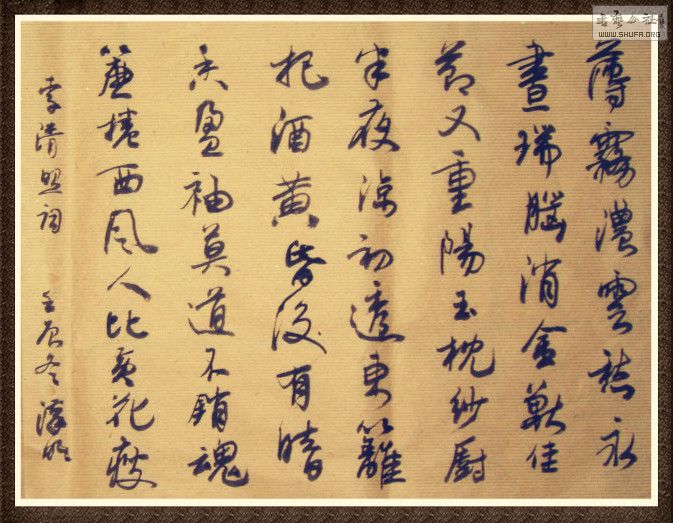 薄霧濃雲愁永
晝瑞腦消金獸佳
節又重陽玉枕紗廚
半夜涼初透東籬
把酒黃昏後有暗
香盈袖莫道不銷魂
簾捲西風人比黃花瘦
李清照詞 壬辰冬
书艺公社
WWW.SHUFA.ORG